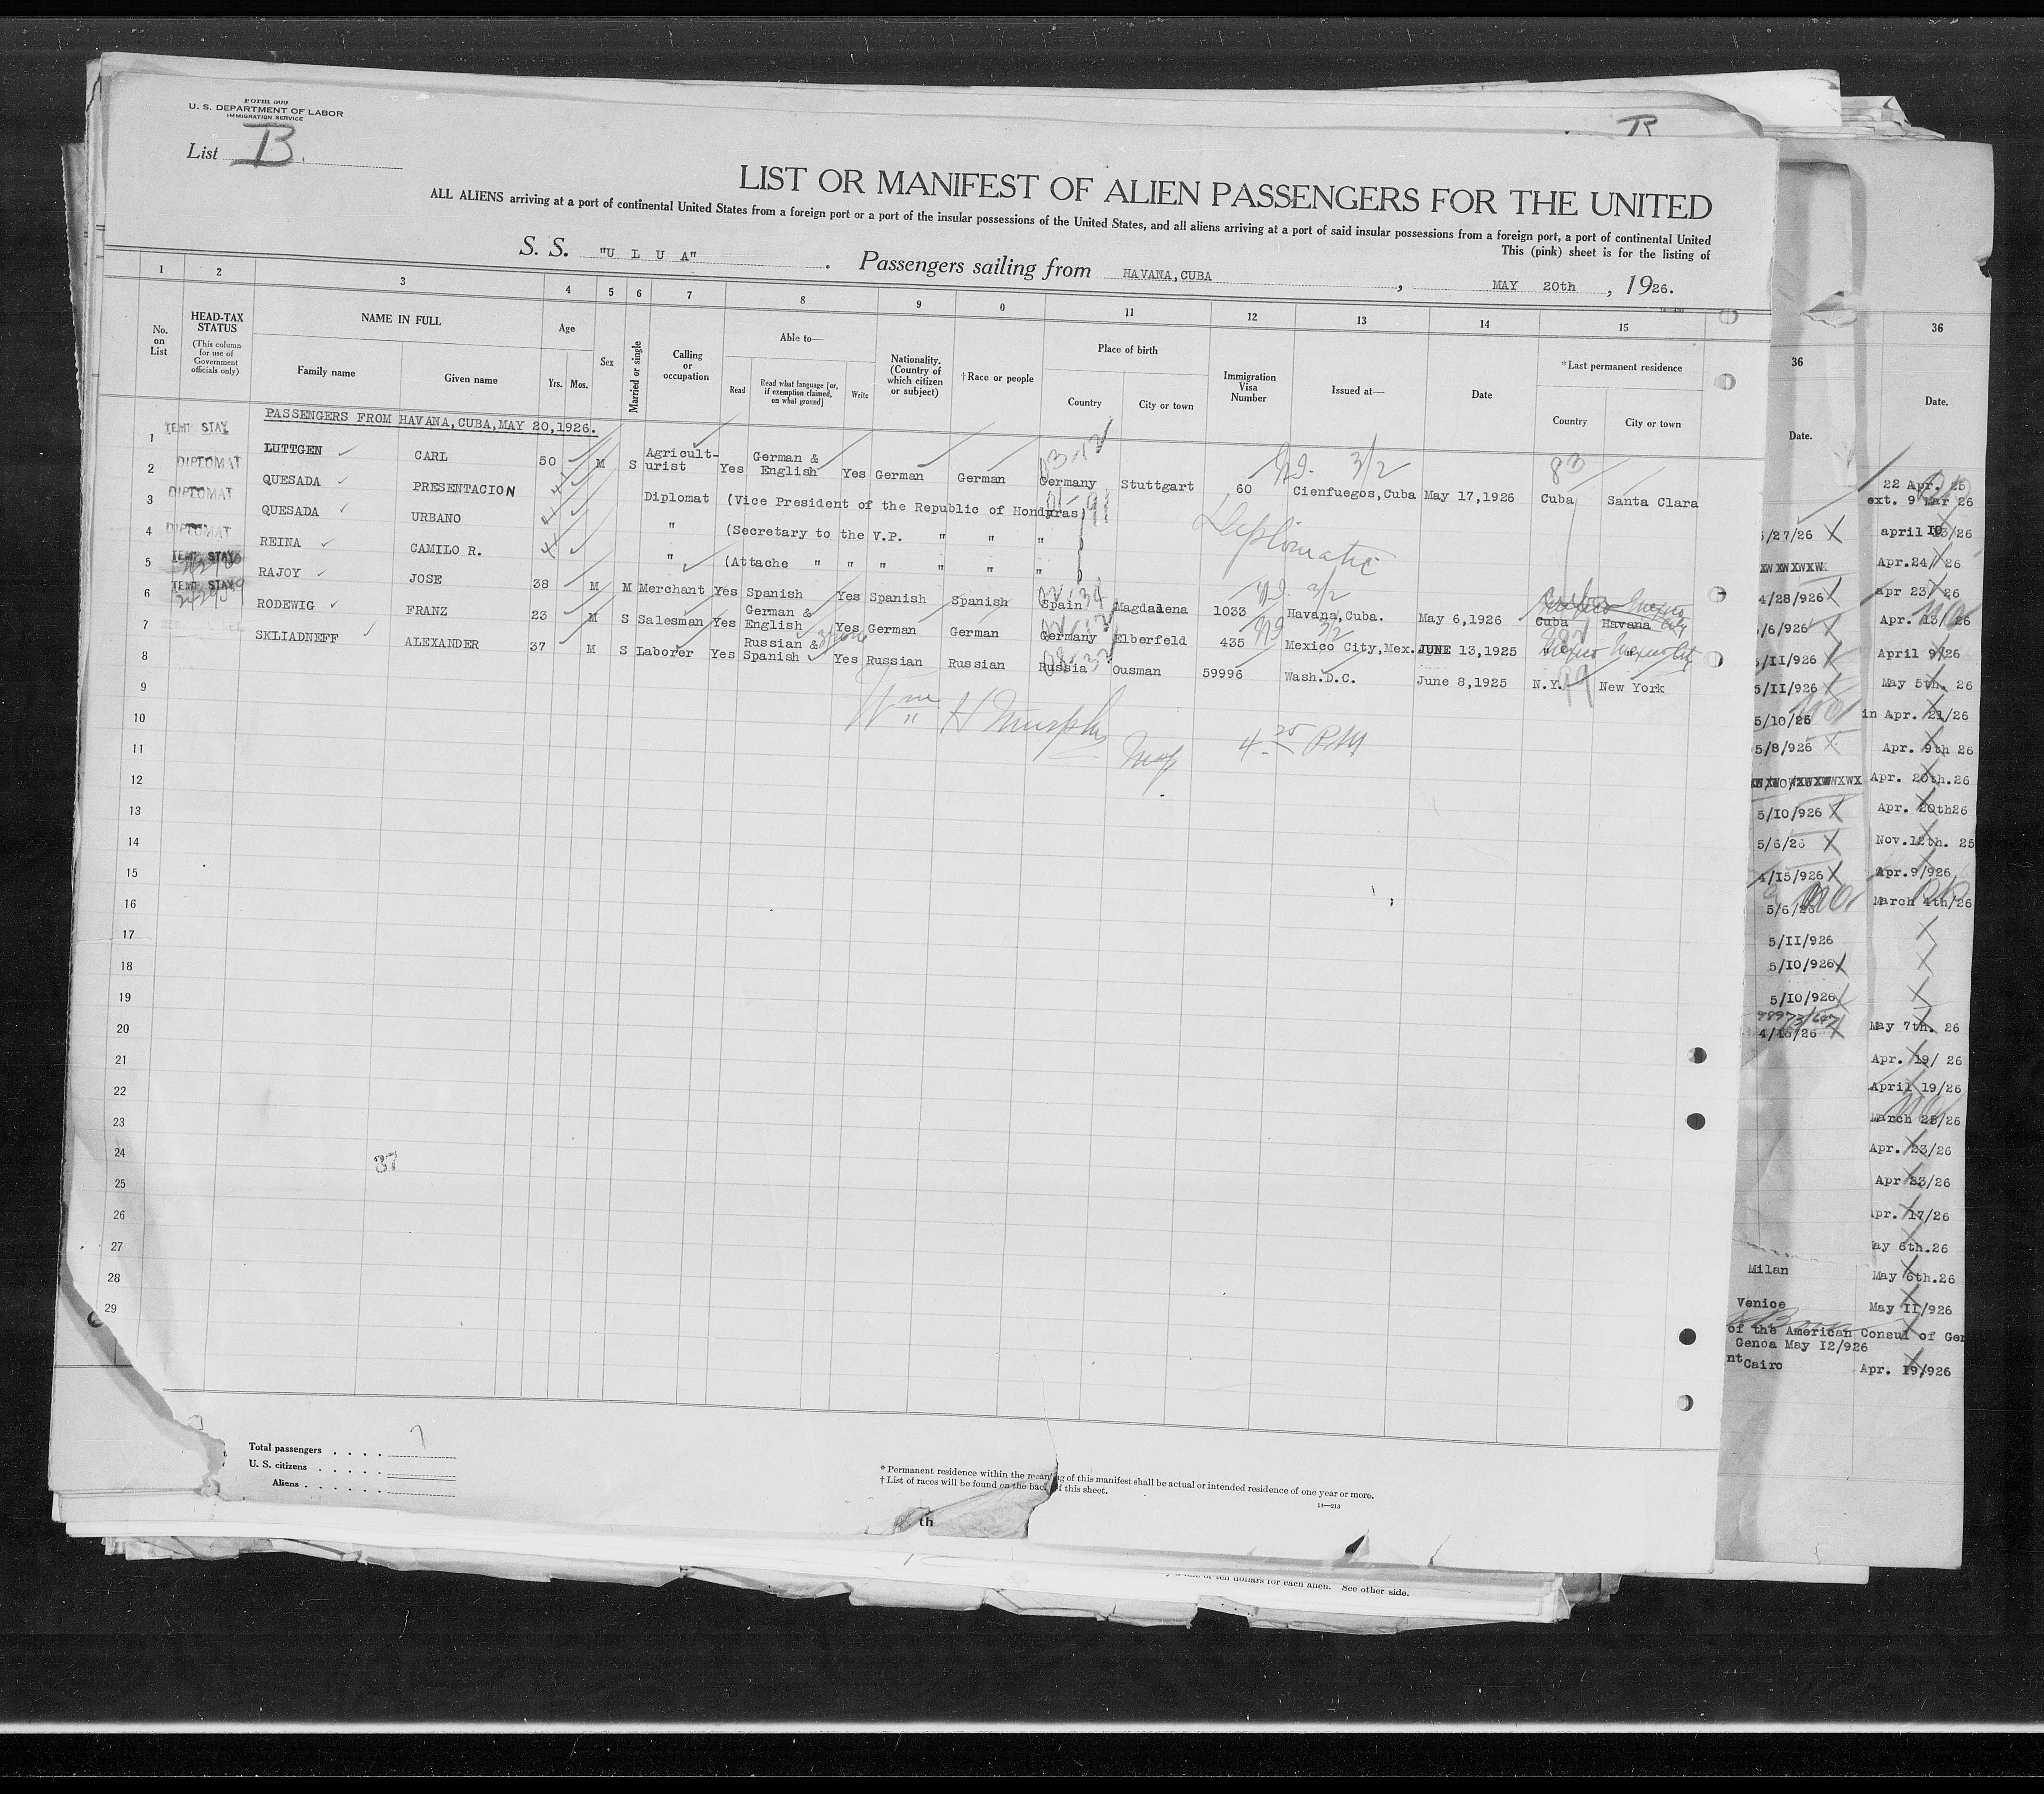 Form 500
U. S. DEPARTMENT OF LABOR
IMMIGRATION SERVICE
List B.
B
LIST OR MANIFEST OF ALIEN PASSENGERS FOR THE UNITED
ALL ALIENS arriving at a port of continental United States from a foreign port or a port of the insular possessions of the United States, and all aliens arriving at a port of said insular possessions from a foreign port, a port of continental United
This (pink) sheet is for the listing of
S. S. "U L U A" . Passengers sailing from HAVANA,CUBA , MAY 20th , 1926.
1 2 3 4 5 6 7 8 9 0 11 12 13 14 15
No. on List
HEAD-TAX STATUS (This column for use of Government officials only)
NAME IN FULL
Family name Given name
Age Yrs. Mos.
Sex
Married or single
Calling or occupation
Able to—
Read Read what language [or, if exemption claimed, on what ground] Write
Nationality. (Country of which citizen or subject)
† Race or people
Place of birth
Country City or town
Immigration Visa Number
Issued at—
Date
*Last permanent residence
Country City or town
36 36
Date. Date.
PASSENGERS FROM HAVANA,CUBA,MAY 20,1926.
1 TEMP. STAY LUTTGEN CARL 50 M S Agricult-urist Yes German & English Yes German German Germany Stuttgart 60 Cienfuegos,Cuba May 17,1926 Cuba Santa Clara
03-13 3/2 83
2 DIPLOMAT QUESADA PRESENTACION Diplomat (Vice President of the Republic of Honduras)
3 DIPLOMAT QUESADA URBANO " (Secretary to the V.P. " " "
Diplomatic
4 DIPLOMAT REINA CAMILO R. " (Attache " " " " " "
5 TEMP. STAY RAJOY JOSE 38 M M Merchant Yes Spanish Yes Spanish Spanish Spain Magdalena 1033 Havana,Cuba. May 6,1926 Cuba Havana
3/2
6 TEMP. STAY RODEWIG FRANZ 23 M S Salesman Yes German & English Yes German German Germany Elberfeld 435 Mexico City,Mex. JUNE 13,1925 Mexico Mexico City
3/2
7 SKLIADNEFF ALEXANDER 37 M S Laborer Yes Russian & Spanish Yes Russian Russian Russia Ousman 59996 Wash.D.C. June 8,1925 N.Y. New York
8
9
Wm H Murphy
10
4 20 PM
11
12
13
14
15
16
17
18
19
20
21
22
23
24
37
25
26
27
28
29
Total passengers . . . . 7
U. S. citizens . . . . .
Aliens . . . . . .
* Permanent residence within the meaning of this manifest shall be actual or intended residence of one year or more.
† List of races will be found on the back of this sheet.
14—213
th
of ten dollars for each alien. See other side.
22 Apr. 25
ext. 9 Mar 26
/27/26
Apr.24/ 26
4/28/926 apr 23/ 26
/6/926 Apr. 13/ 26
/II/926 April 9/26
5/II/926 May 5th. 26
5/10/26 in Apr. 21/26
5/8/926 Apr. 9th 26
Apr. 20th.26
5/10/926 Apr. 20th26
5/6/26 Nov.12th. 25
4/15/926 Apr.9/926
5/6/26 March 4th/26
5/II/926
5/10/926
5/10/926
4/15/26 May 7th. 26
Apr. 19/ 26
April 19/26
March 28/26
Apr. 23/26
Apr 23/26
pr. 17/26
ay 6th.26
Milan May 6th.26
Venice May II/926
of the American Consul of Gen
Genoa May I2/926
nt Cairo Apr. 19/926